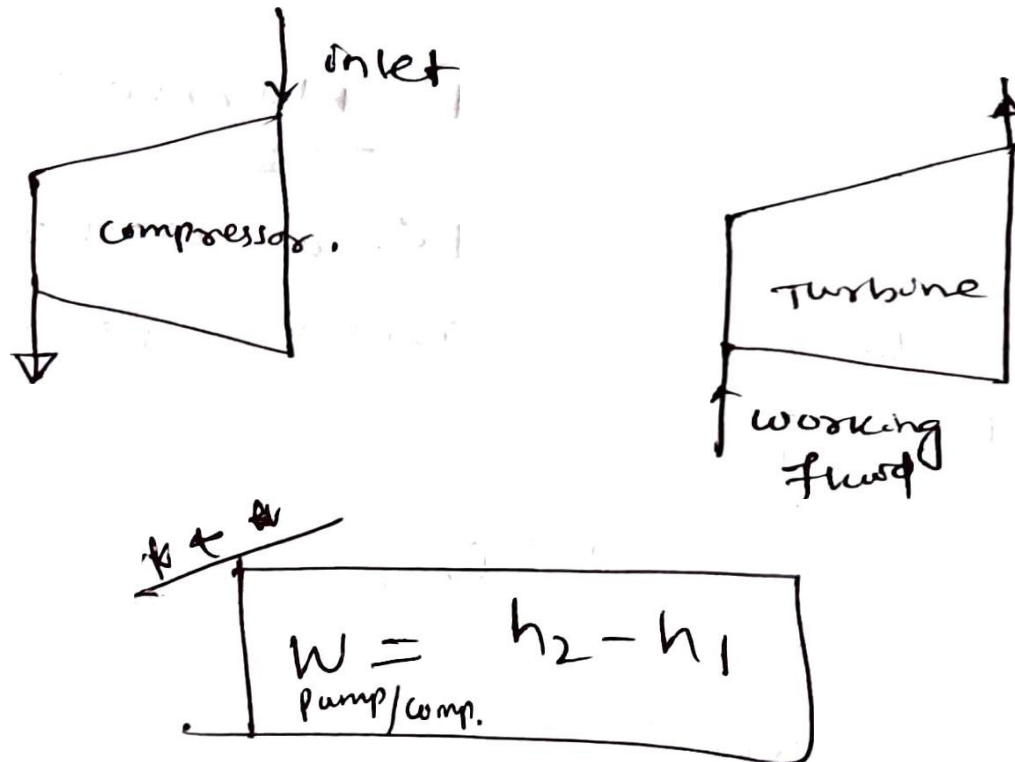 inlet
compressor.
Turbine
working
fluid
W = h₂ - h₁
pump/comp.